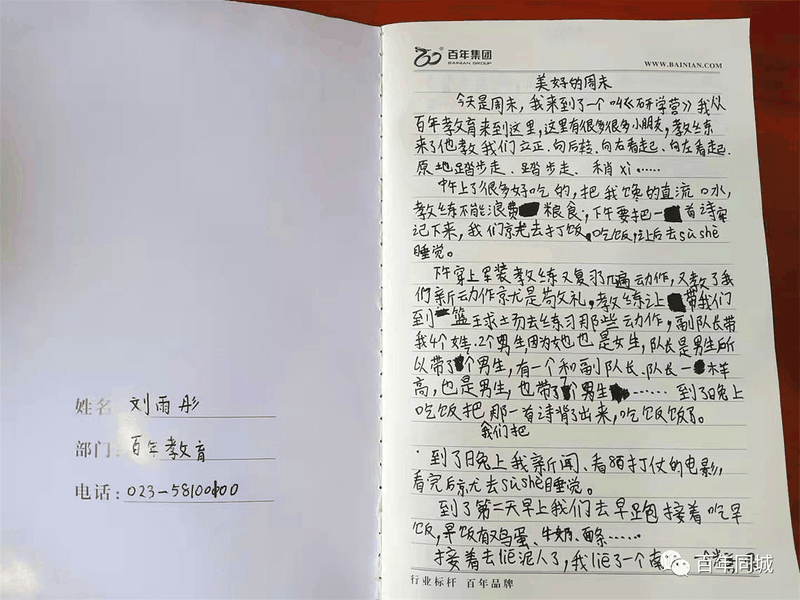 姓名 刘雨彤
部门：百年教育
电话：023-58100100
百年集团
BAINIAN GROUP
WWW.BAINIAN.COM
美好的周末
今天是周末，我来到了一个叫《研学营》我从
百年教育来到这里，这里有很多很多小朋友，教练
来了他教我们立正、向后转、向右看起、向左看起、
原地踏步走、踏步走、稍xi……
中午上了很多好吃的，把我馋的直流口水，
教练不能浪费粮食，下午要把一首诗
记下来，我们就去打饭，吃饭，让后去sùshè
睡觉。
下午穿上军装教练又复习几遍动作，又教了我
们新动作就是敬礼，教练让带我们
到篮球场去练习那些动作，副队长带
我4个女生、2个男生，因为她也是女生，队长是男生所
以带了个男生，有一个和副队长、队长一样
高，也是男生，也带了个男生……到了晚上
吃饭把那一首诗背了出来，吃饭饭了。
我们把
到了晚上我新闻、看打仗的电影，
看完后就去sùshè睡觉。
到了第二天早上我们去早跑接着吃早
饭，早饭有鸡蛋、牛奶、面条……
接着去liē泥人了，我liē了一个
行业标杆 百年品牌
百年同城